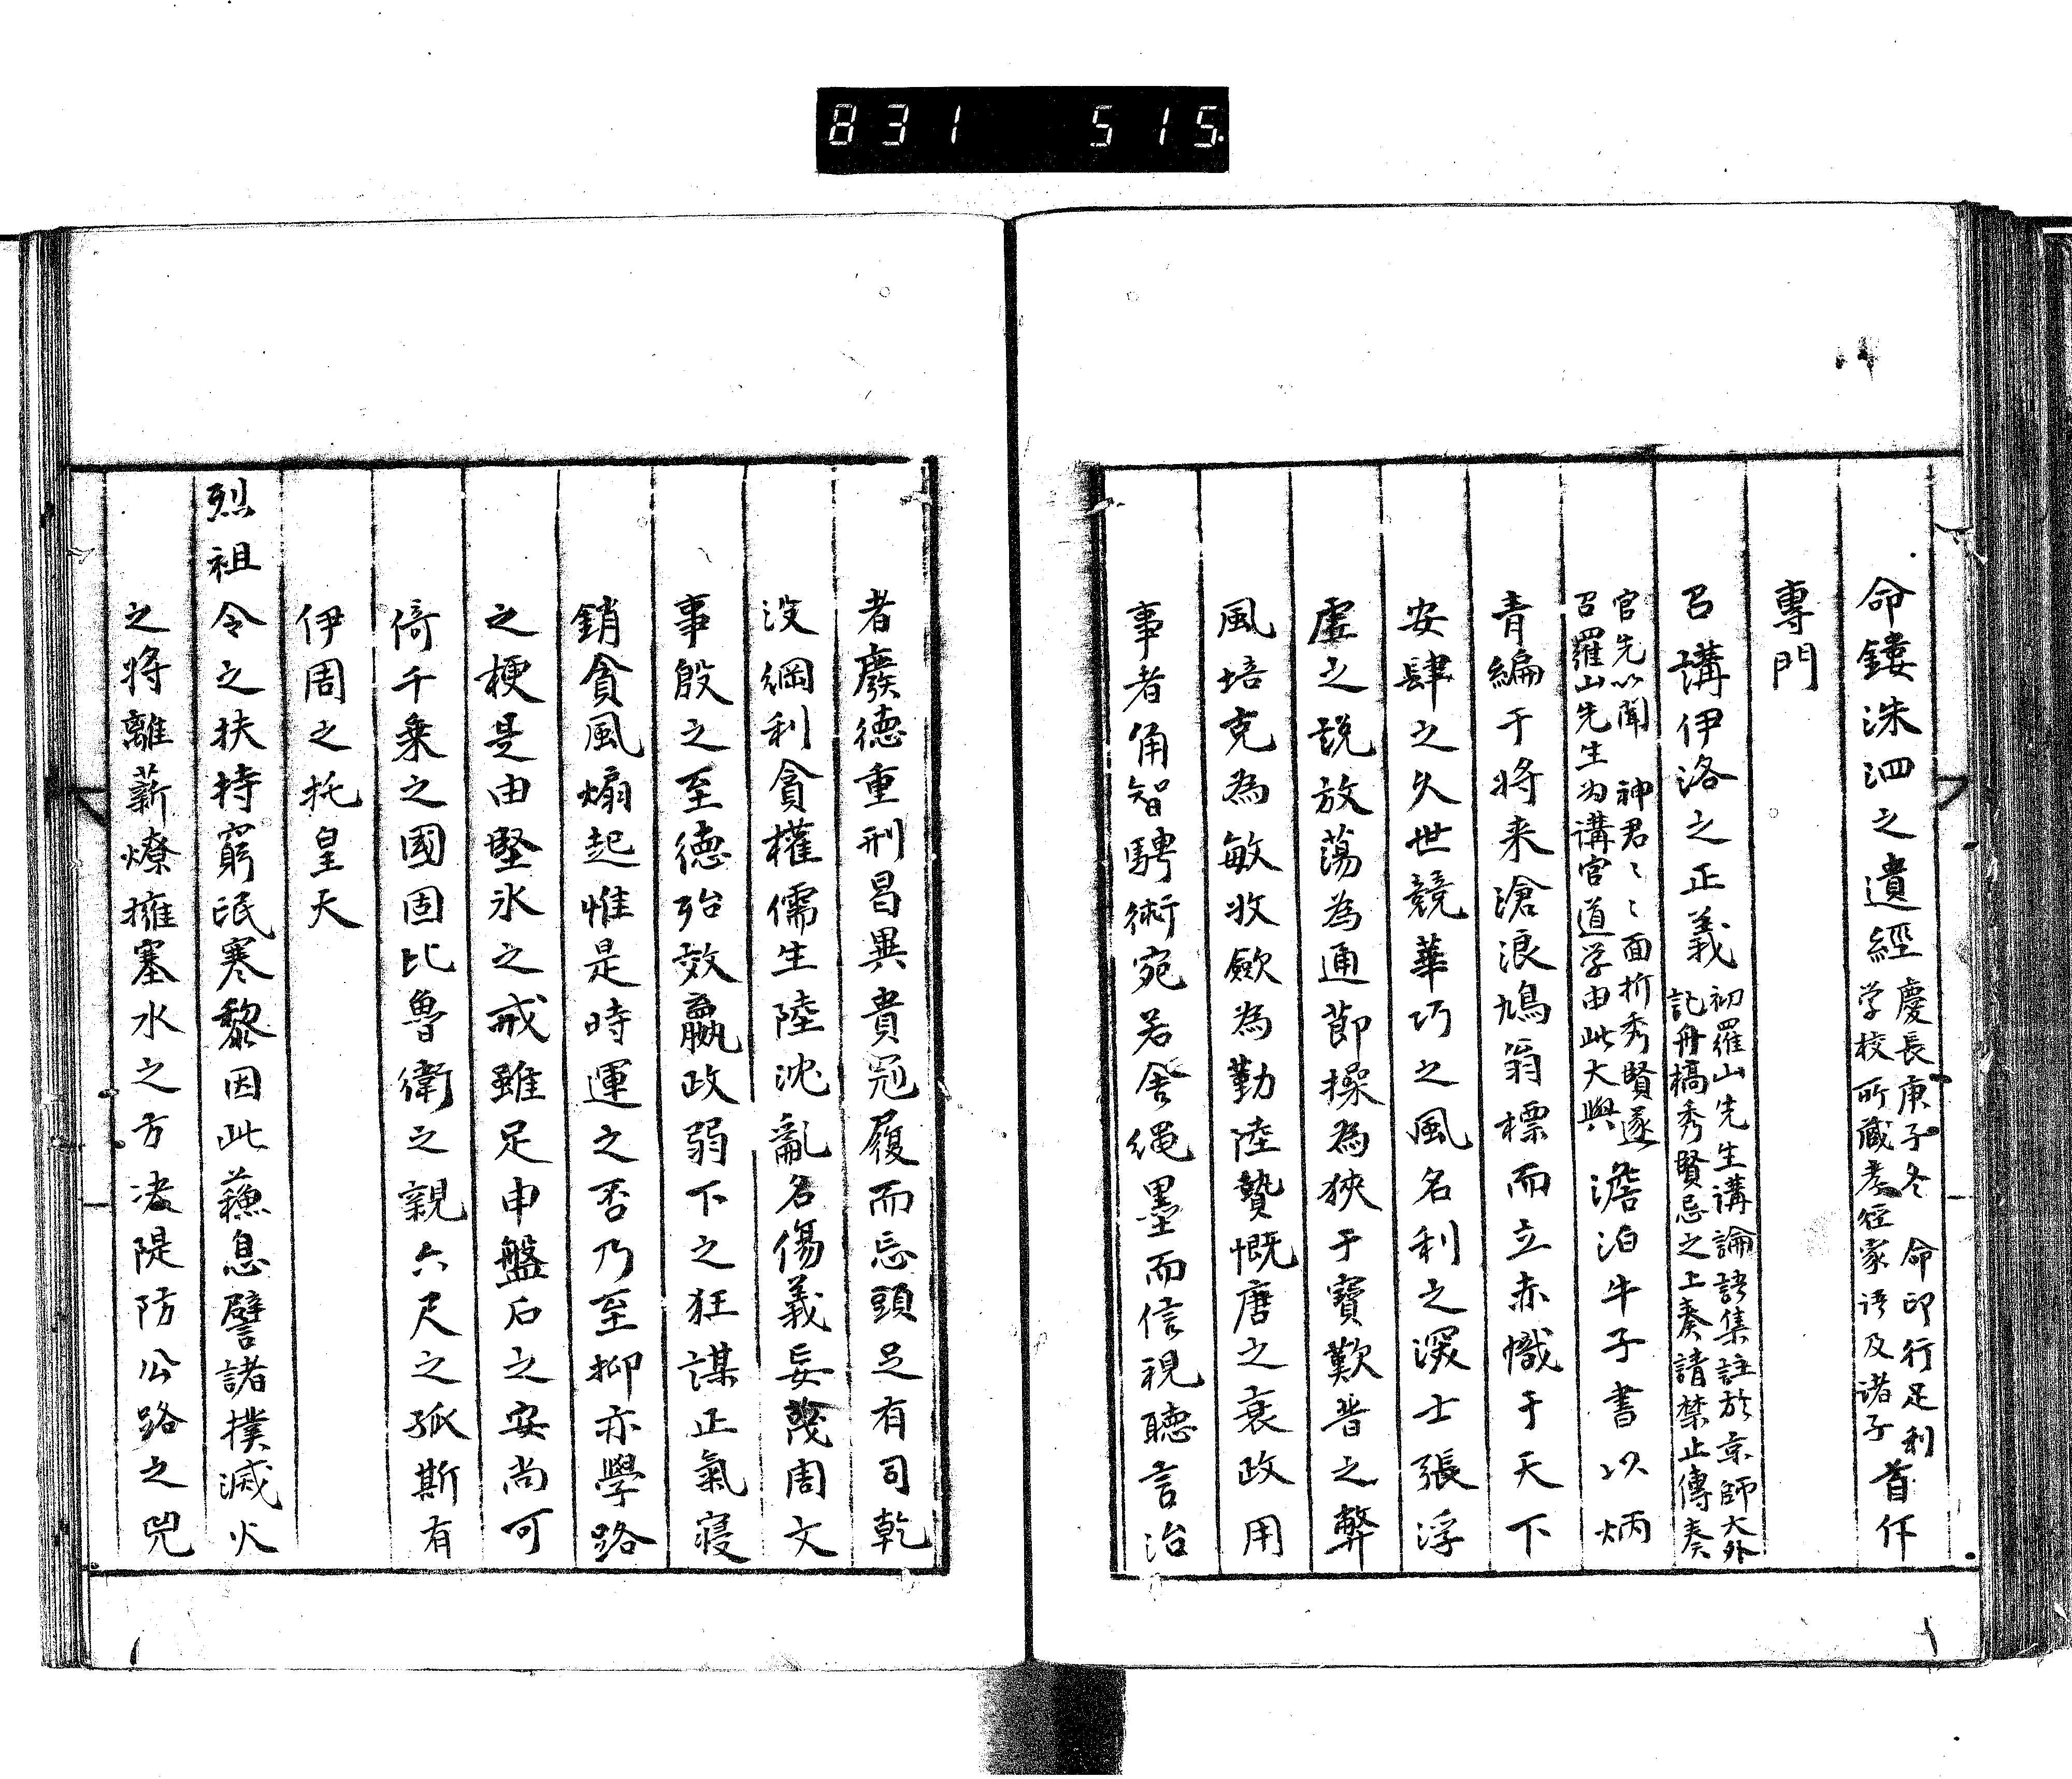 831 515
命鏤洙泗之遺經慶長庚子冬命印行足利学校所蔵孝径家语及诸子首仵
專門
召講伊洛之正義初羅山先生講論語集註於京師大外記舟橋秀賢忌之上奏請禁止傳奏
官先以聞神君〻〻面折秀賢遂召羅山先生为講官道学由此大興澹泊牛子書以炳
青編于将来滄浪鳩翁標而立赤幟于天下
安肆之久世競華巧之風名利之深士張浮
虚之説放蕩為通節操為狹于寶歎晋之弊
風培克為敏收斂為勤陸贄慨唐之衰政用
事者角智騁術宛若舎繩墨而信視聽言治
者廢德重刑昌異貴冠履而忘頭足有司乾
没綱利貪權儒生陸沈亂名傷義妄蔑周文
事殷之至德殆效嬴政弱下之狂謀正氣寝
銷貪風煽起惟是時運之否乃至抑亦學路
之梗是由堅氷之戒雖足申盤石之安尚可
倚千乗之國固比魯衛之親六尺之孤斯有
伊周之托皇天
烈祖令之扶持窮氓寒黎因此蘓息譬諸撲滅火
之将離薪燎擁塞水之方决隄防公路之兜